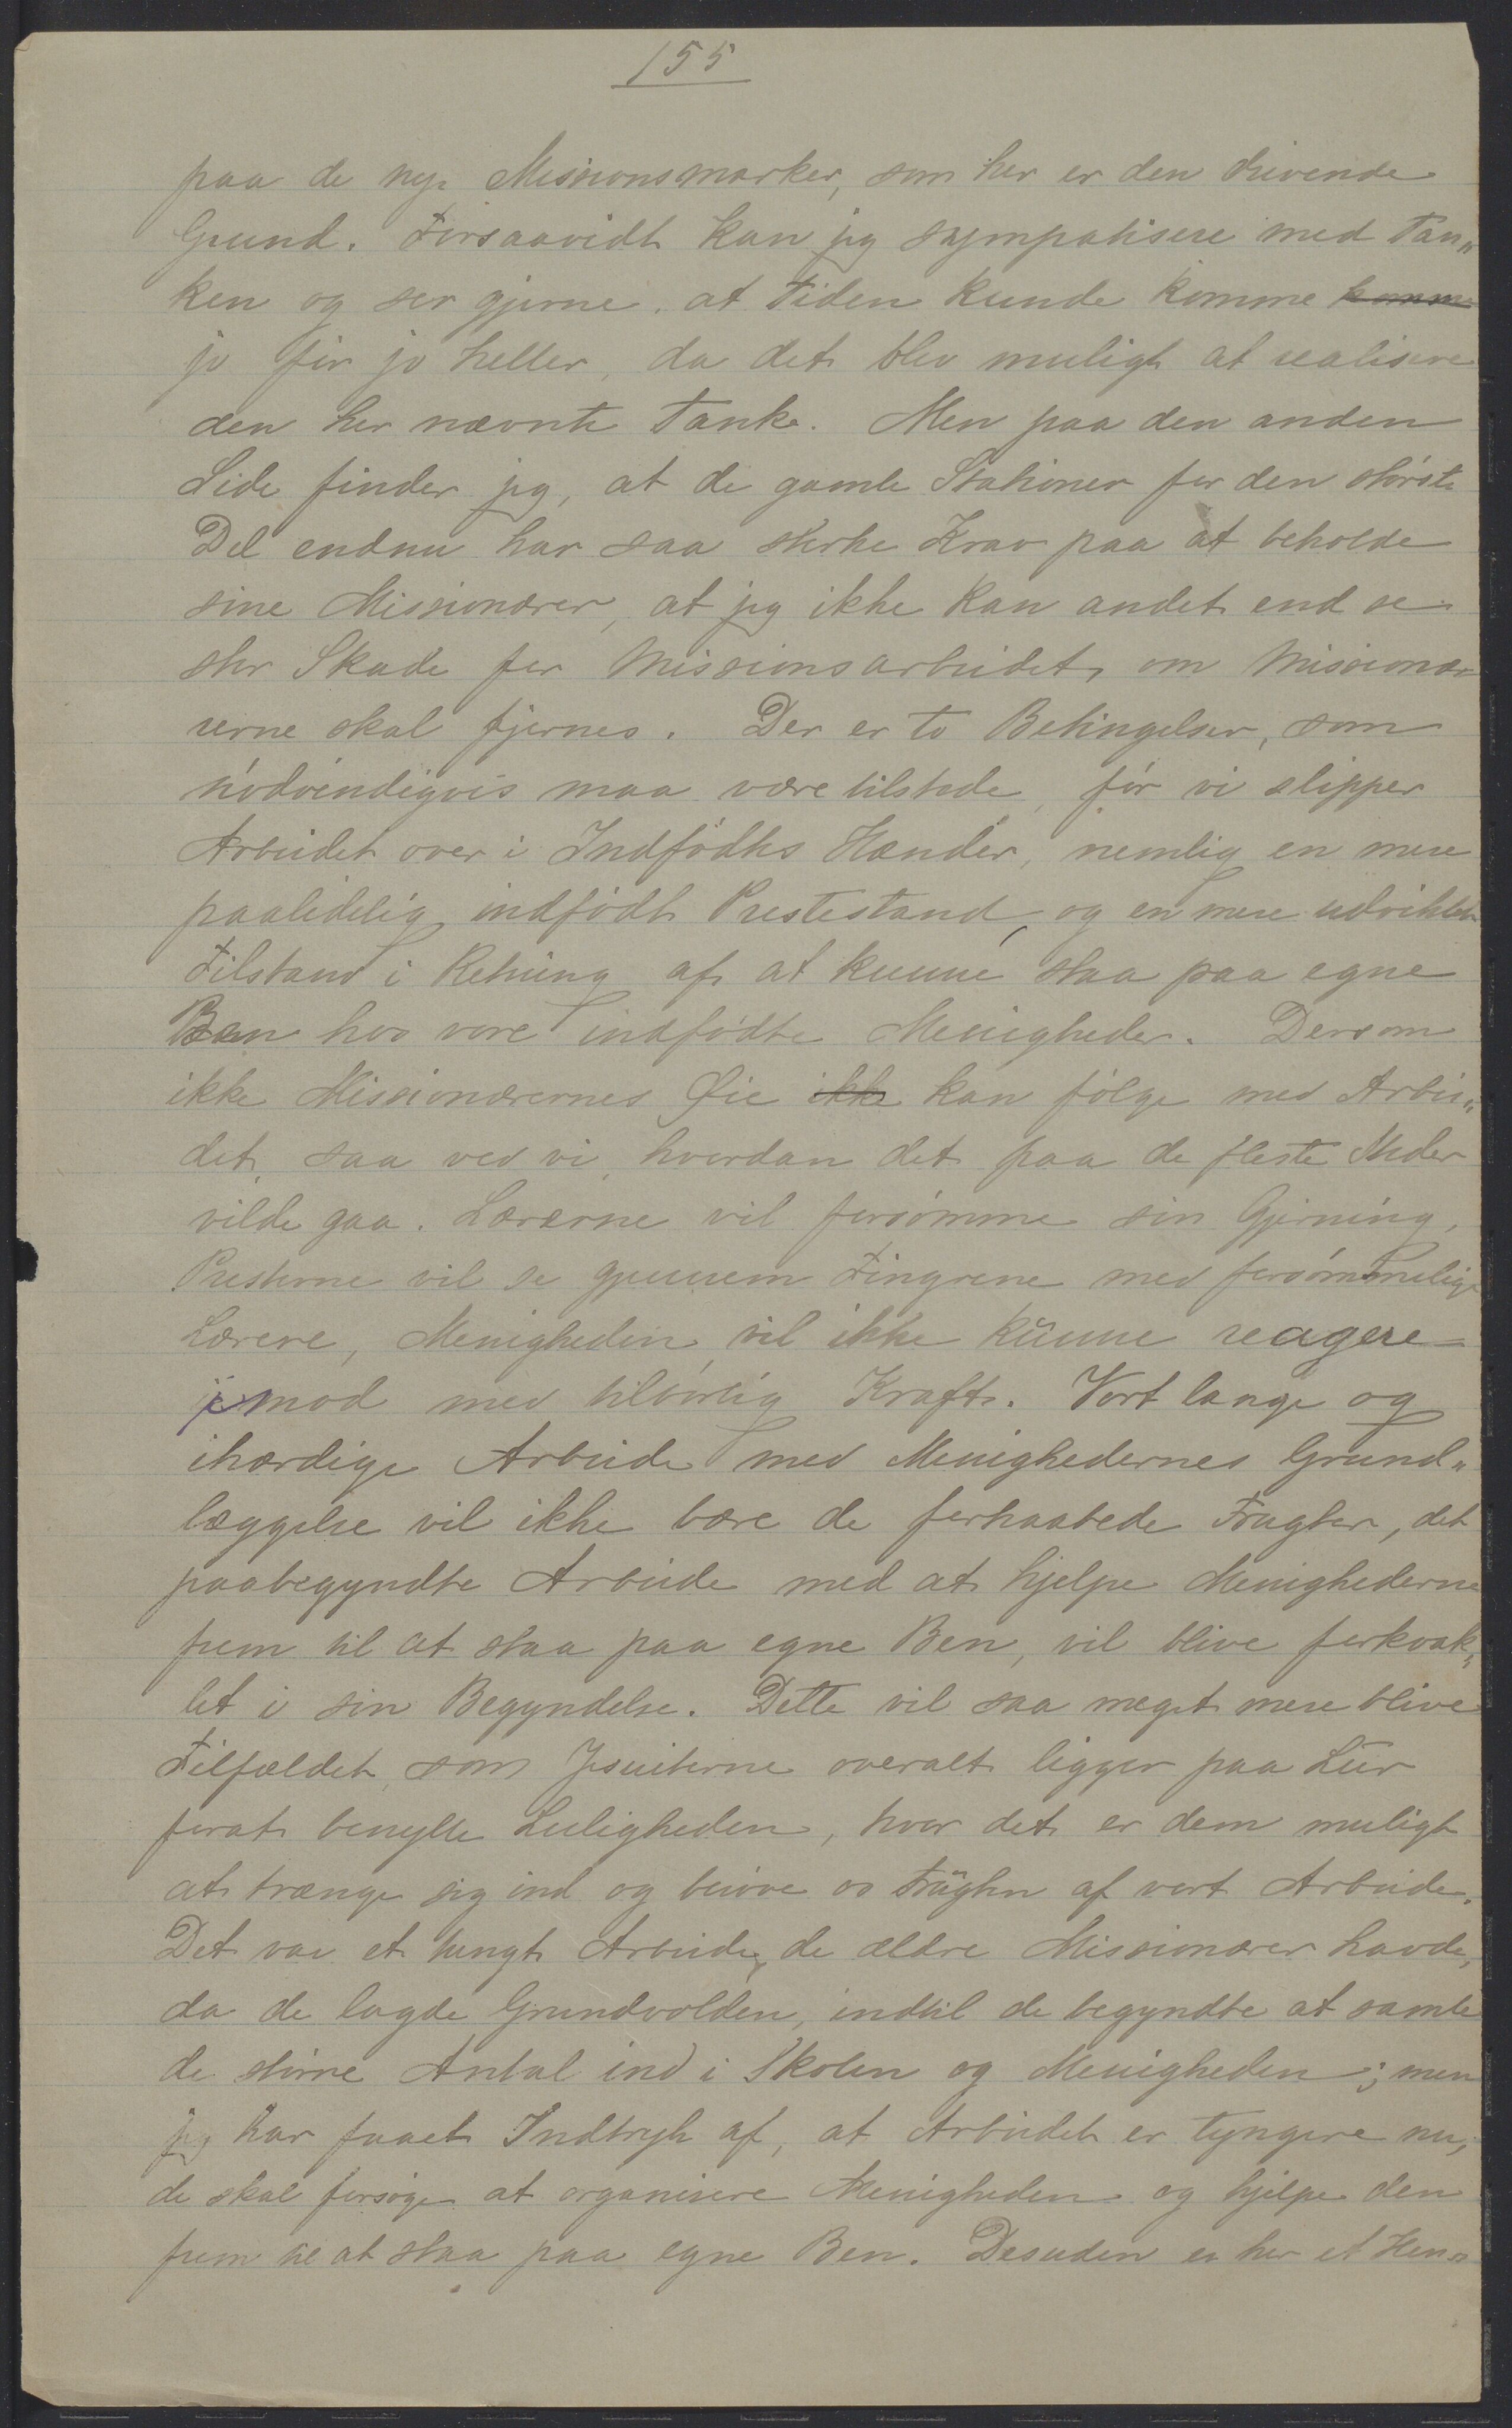 155
paa de nye Missionsmarker, som her er den drivende
Grund. Forsaavidt kan jeg sympatisere med Tan„
ken og ser gjerne, at Tiden kunde komme komme
jo før jo heller, da det blev muligt at realisere
den her nævnte Tanke. Men paa den anden
Side finder jeg, at de gamle Stationer for den største
Del endnu har saa sterke Krav paa at beholde
sine Missionærer, at jeg ikke kan andet end se
stor Skade for Missionsarbeidet, om Missionæ
rerne skal fjernes. Der er to Betingelser, som
nødvendigvis maa være tilstede, før vi slipper
Arbeidet over i Indfødtes Hænder, nemlig en mere
paalidelig indfødt Prestestand, og en mere udviklet
Tilstand i Retning af at kunne staa paa egne
Ben hos vore indfødte Menigheder. Dersom
ikke Missionærernes Øie ikke kan følge med Arbei„
det, saa ved vi, hvordan det paa de fleste Steder
vilde gaa. Lærerne vil forsømme sin Gjerning,
Presterne vil se gjennem Fingrene med forsømmelige
Lærere, Menigheden vil ikke kunne reagere
imod med tilbørlig Kraft. Vort lange og
ihærdige Arbeide med Menighedernes Grund„
læggelse vil ikke bære de forhaabede Frugter, det
paabegyndte Arbeide med at hjelpe Menighederne
frem til at staa paa egne Ben, vil blive forkvak„
let i sin Begyndelse. Dette vil saa meget mere blive
Tilfældet, som Jesuiterne overalt ligger paa Lur
forat benytte Leiligheden, hvor det er dem muligt
at trænge sig ind og berøve os Frugten af vort Arbeide.
Det var et tungt Arbeide, de ældre Missionærer havde,
da de lagde Grundvolden, indtil de begyndte at samle
de større Antal ind i Skolen og Menigheden; men
jeg har faaet Indtryk af, at Arbeidet er tyngere nu,
de skal forsøge at organisere Menigheden og hjelpe den
frem til at staa paa egne Ben. Desuden er her et Hen„